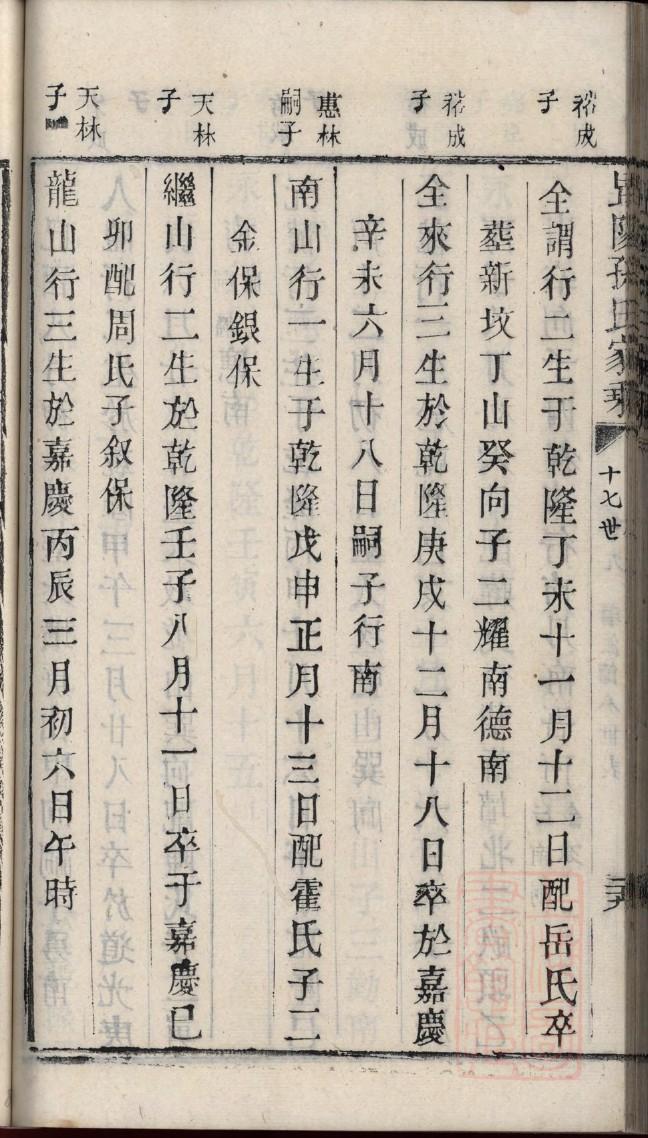 孫氏家乘
十七世
裕成子
全謂行二生于乾隆丁未十一月十二日配岳氏卒
塟新坟丁山癸向子二耀南德南
裕成子
全來行三生於乾隆庚戌十二月十八日卒於嘉慶
辛未六月十八日嗣子行南
蕙林嗣子
南山行一生于乾隆戊申正月十三日配霍氏子二
金保銀保
天林子
繼山行二生於乾隆壬子八月十一日卒于嘉慶已
卯配周氏子叙保
天林子
龍山行三生於嘉慶丙辰三月初六日午時